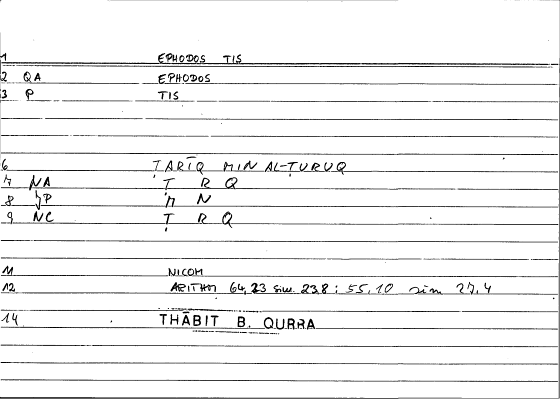 1 EPHODOS TIS
2 QA EPHODOS
3 P TIS
6 ṬARĪQ MIN AL-ṬURUQ
7 NA Ṭ R Q
8 P M N
9 NC Ṭ R Q
11 NICOM
12 ARITHM 64,23 sim. 23,8 ; 55,10 sim 27,4
14 THĀBIT B. QURRA